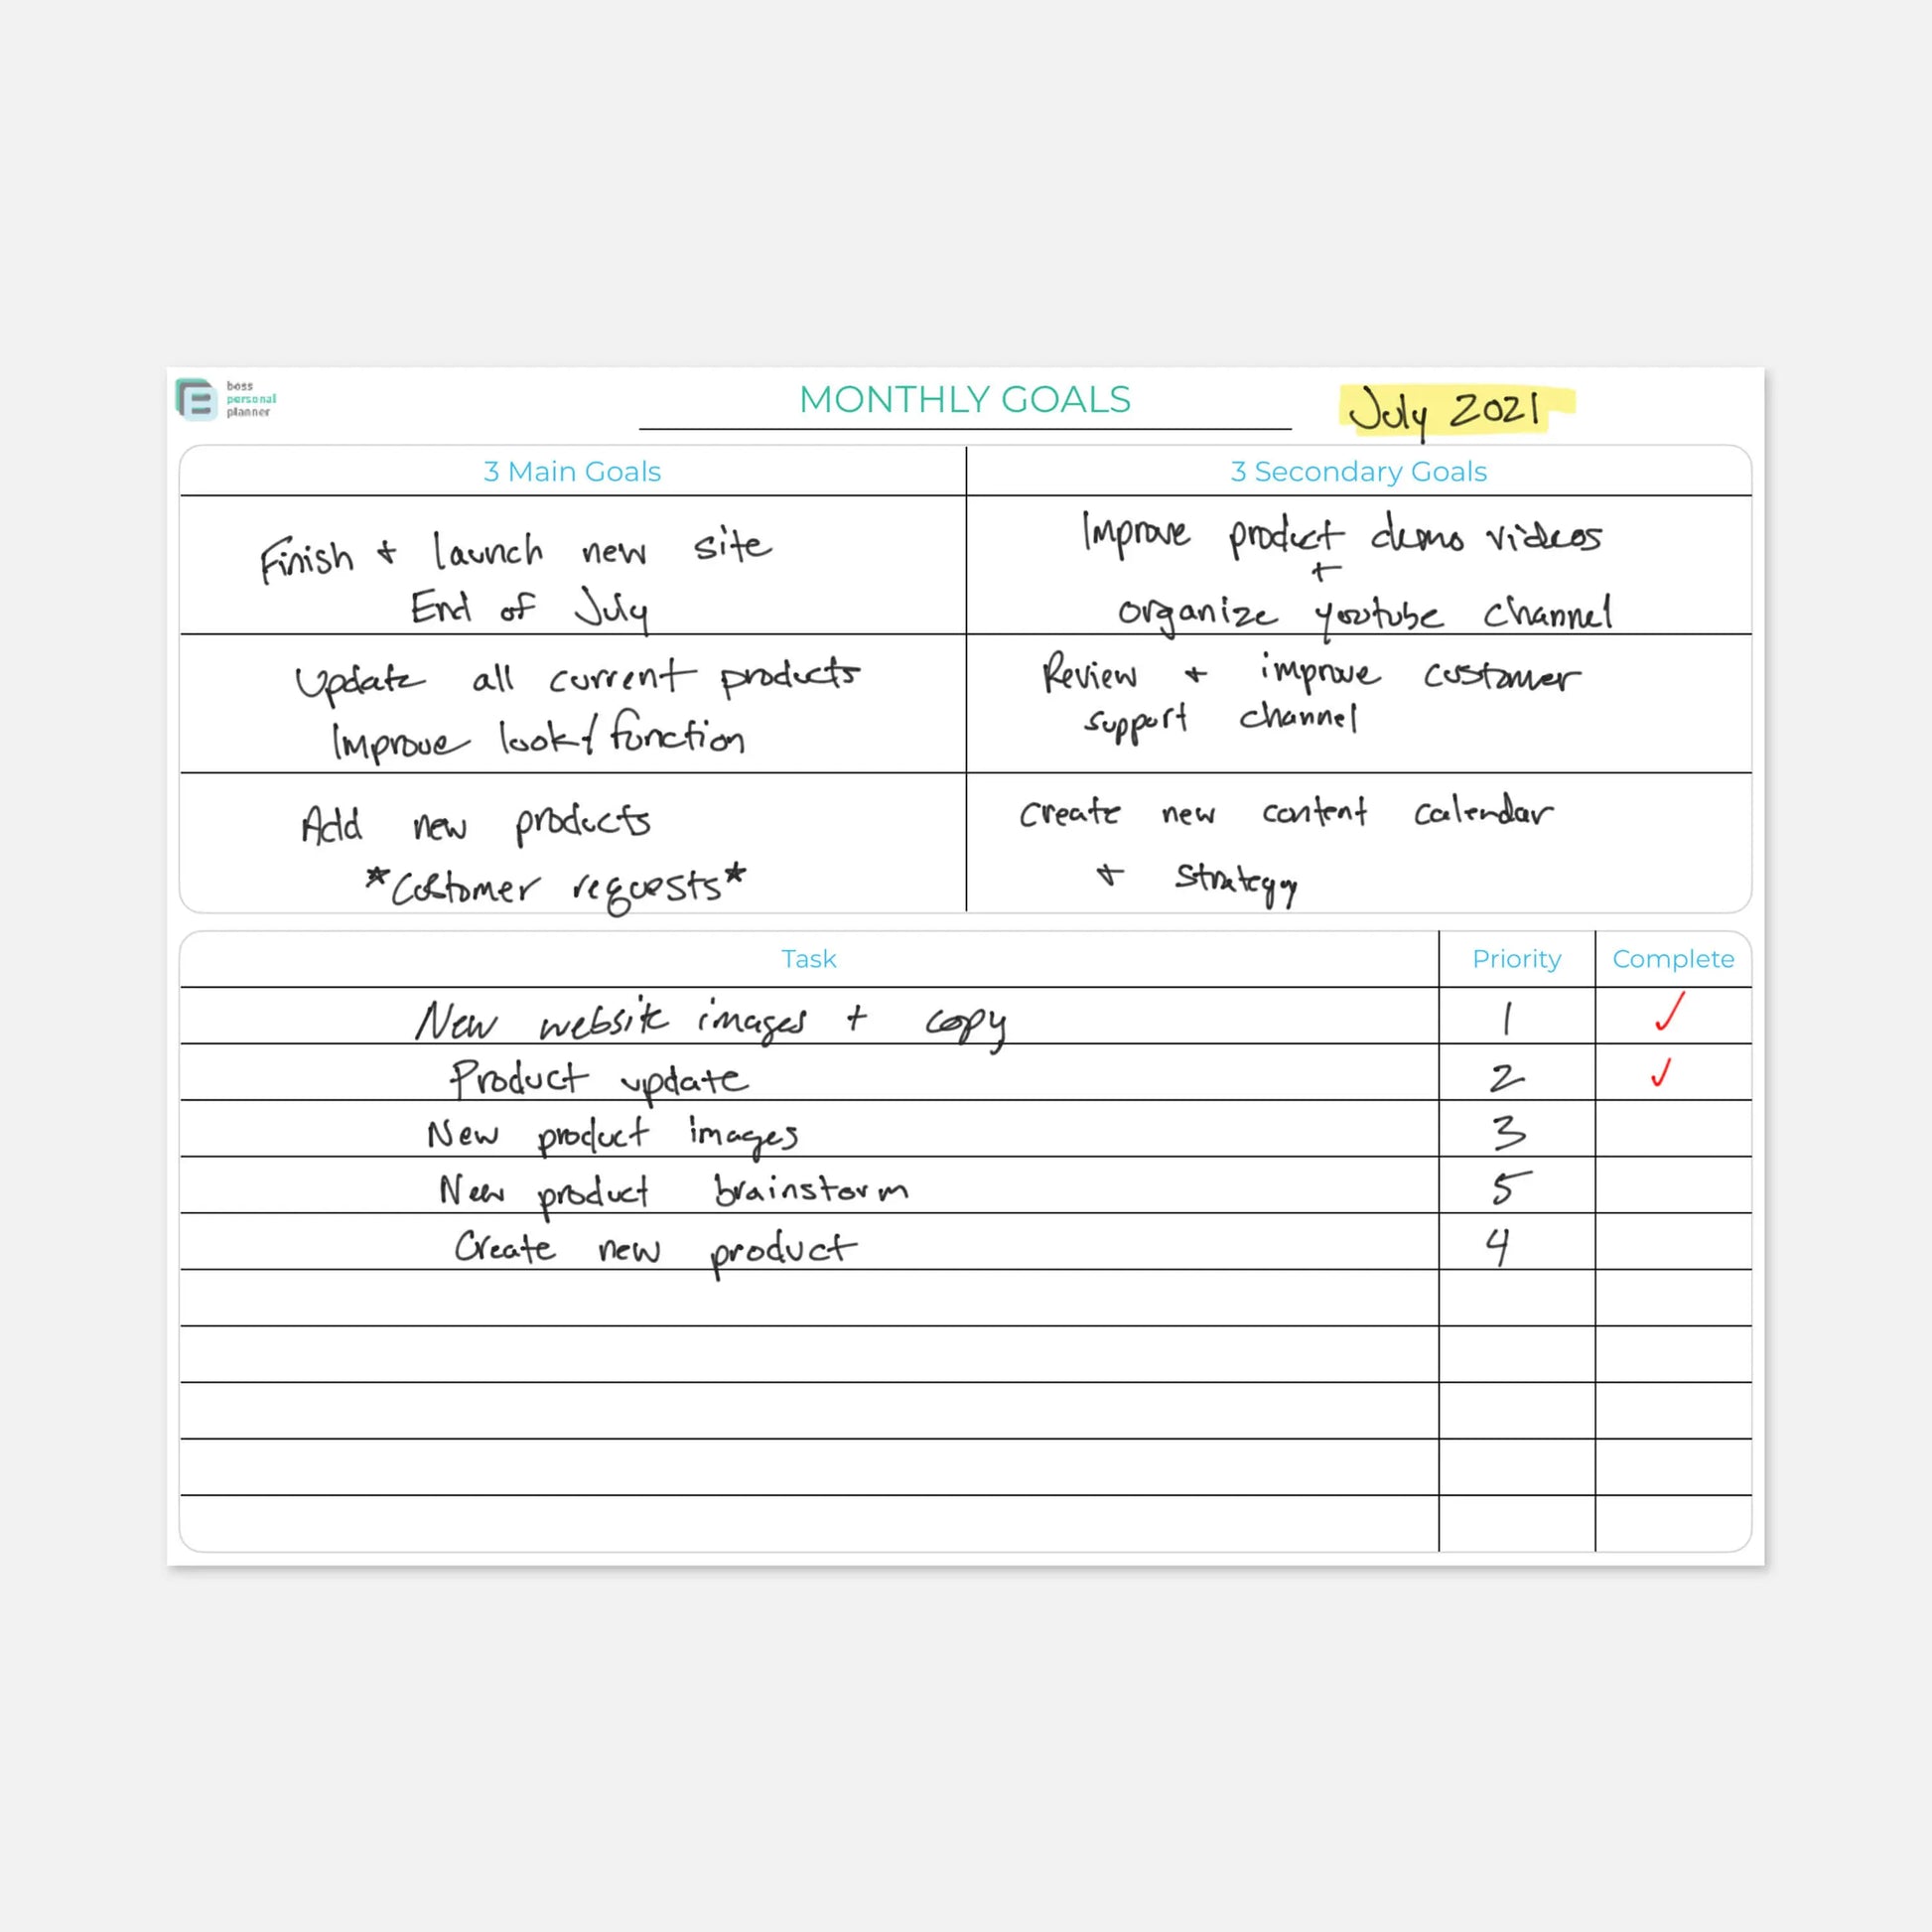 boss
personal
planner
MONTHLY GOALS
July 2021
3 Main Goals
3 Secondary Goals
Finish + launch new site
End of July
Improve product demo videos
+
organize youtube channel
Update all current products
Improve look / function
Review + improve customer
support channel
Add new products
*Customer requests*
Create new content calendar
+ strategy
Task Priority Complete
New website images + copy 1 ✓
Product update 2 ✓
New product images 3
New product brainstorm 5
Create new product 4